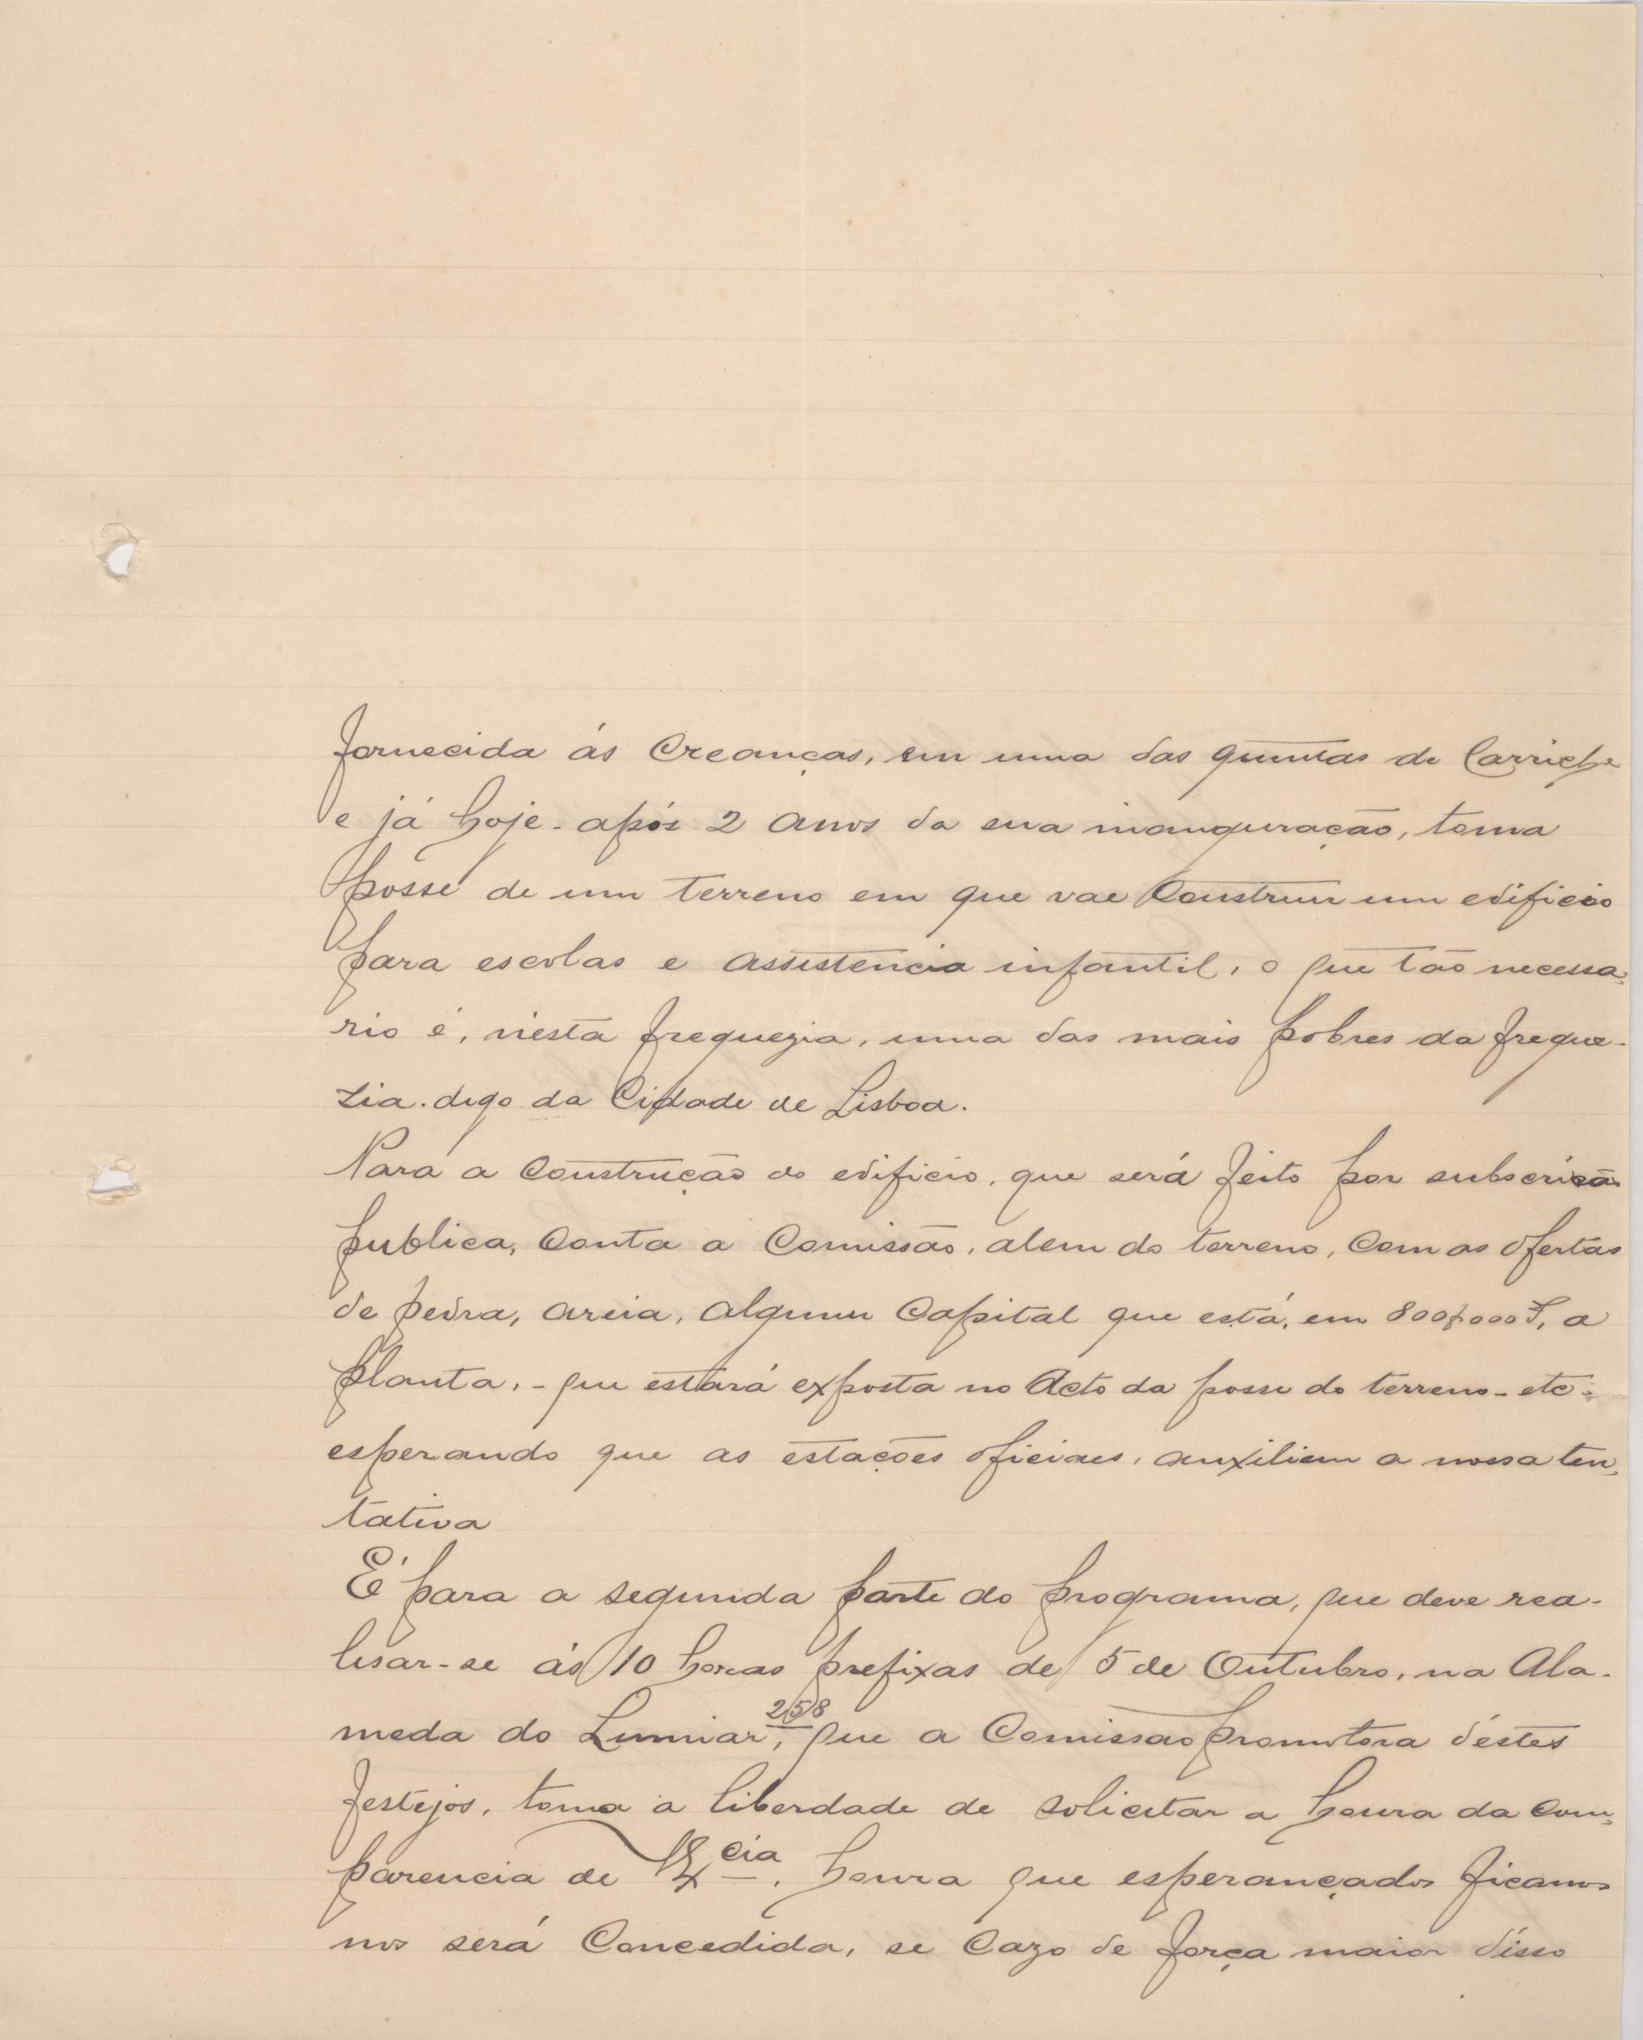 fornecida ás Creanças, em uma das quintas de Carriche
e já hoje - após 2 anos da sua inauguração, toma
posse de um terreno em que vae Construir um edificio
para escolas e assistencia infantil, o que tão necessa-
rio é, nesta freguezia, uma das mais pobres da fregue-
zia. digo da Cidade de Lisboa.
Para a Construção do edificio, que será feito por subscrição
publica, Conta a Comissão, alem do terreno, Com as Ofertas
de pedra, areia, algum Capital que está, em 800$000 F, a
planta, - que estará exposta no Acto da posse do terreno - etc.
esperando que as estações oficiaes, auxiliem a nossa ten-
tativa
É para a segunda parte do programa, que deve rea-
lisar-se ás 10 horas prefixas de 5 de Outubro, na Ala-
meda do Lumiar, 258 que a Comissão promotora déstes
festejos, toma a liberdade de solicitar a honra da com-
parencia de V. Ex cia, honra que esperançados ficamos
nos será Concedida, se Cazo de força maior disso